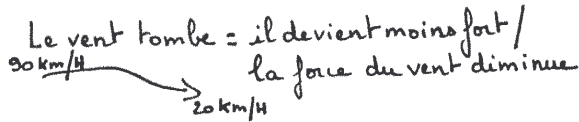 Le vent tombe = il devient moins fort /
90 km/H
la force du vent diminue
20 km/H